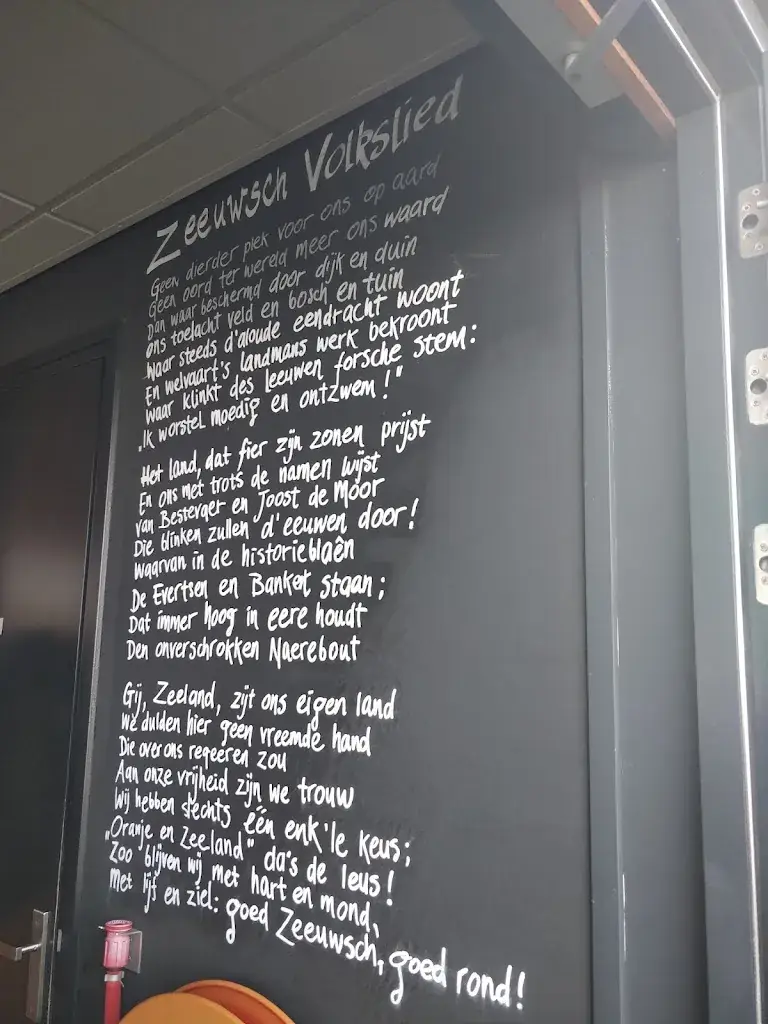 Zeeuwsch Volkslied
Geen dierder plek voor ons op aard
Geen oord ter wereld meer ons waard
Dan waar beschermd door dijk en duin
ons toelacht veld en bosch en tuin
Waar steeds d'aloude eendracht woont
En welvaart's landmans werk bekroont
Waar klinkt des leeuwen forsche stem:
„Ik worstel moedig en ontzwem!"
Het land, dat fier zijn zonen prijst
En ons met trots de namen wijst
van Bestevaer en Joost de Moor
Die blinken zullen d'eeuwen door!
Waarvan in de historieblaên
De Evertsen en Bankert staan;
Dat immer hoog in eere houdt
Den onverschrokken Naerebout
Gij, Zeeland, zijt ons eigen land
We dulden hier geen vreemde hand
Die over ons regeeren zou
Aan onze vrijheid zijn we trouw
Wij hebben slechts één enk'le keus;
„Oranje en Zeeland" da's de leus!
Zoo blijven wij met hart en mond,
Met lijf en ziel: goed Zeeuwsch, goed rond!